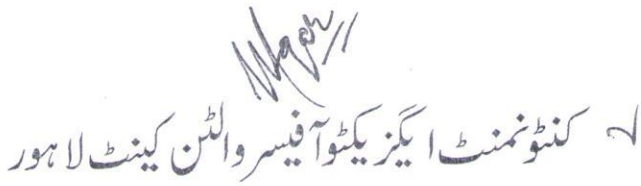 کنٹونمنٹ ایگزیکٹو آفیسر والٹن کینٹ لاہور